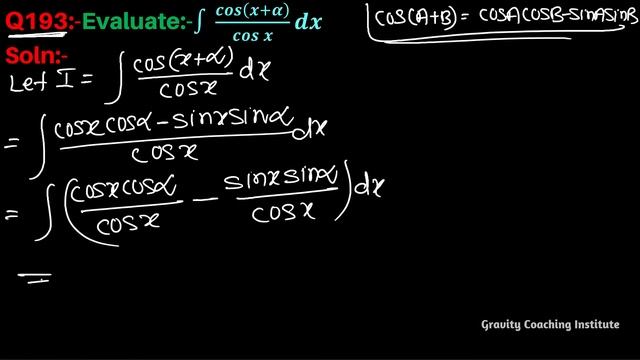 Q193:-Evaluate:- ∫ cos(x+α)/cos x dx
cos(A+B) = cosAcosB-sinAsinB
Soln:-
Let I = ∫ cos(x+α)/cosx dx
= ∫ (cosxcosα - sinxsinα)/cosx dx
= ∫ (cosxcosα/cosx - sinxsinα/cosx) dx
=
Gravity Coaching Institute